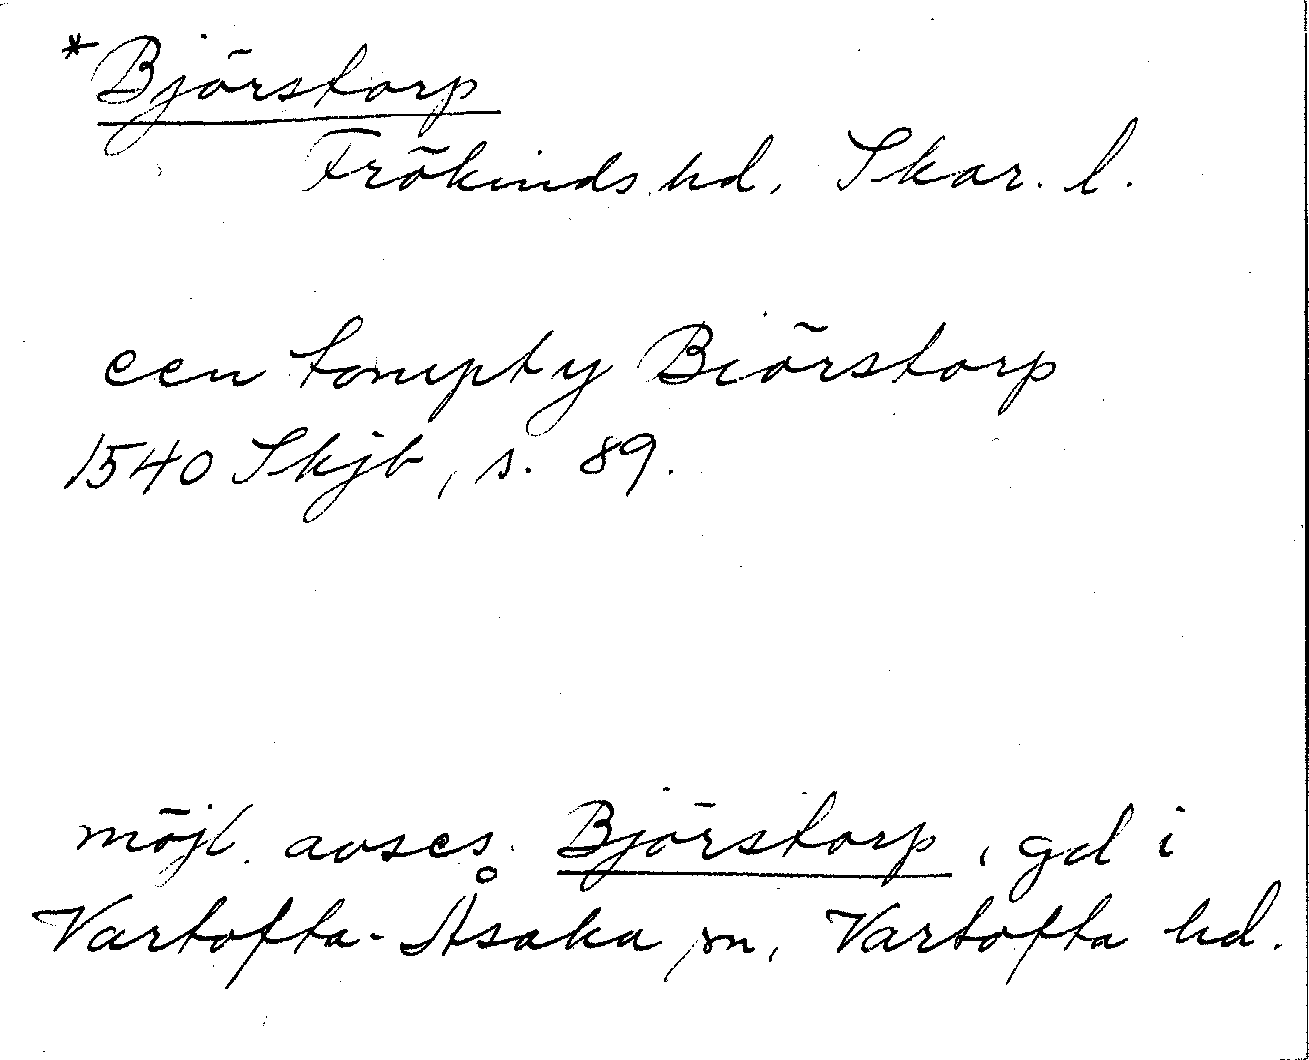 *Björstorp
Frökinds hd, Skar. l.
een tompt y Biörstorp
1540 Skjb, s. 89.
möjl. avses Björstorp, gd i
Vartofta-Åsaka sn, Vartofta hd.